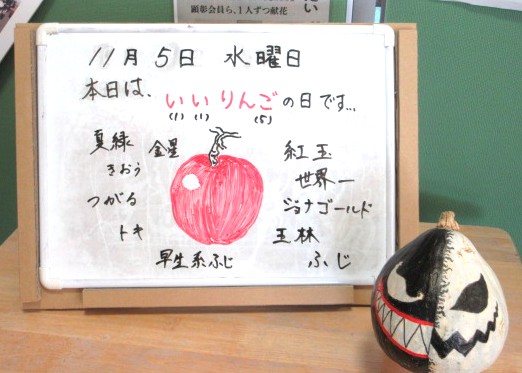 顕彰会員ら、1人ずつ献花
11月5日 水曜日
本日は、
いいりんごの日です…
(1) (1) (5)
夏緑
金星
きおう
つがる
トキ
早生系ふじ
紅玉
世界一
ジョナゴールド
王林
ふじ